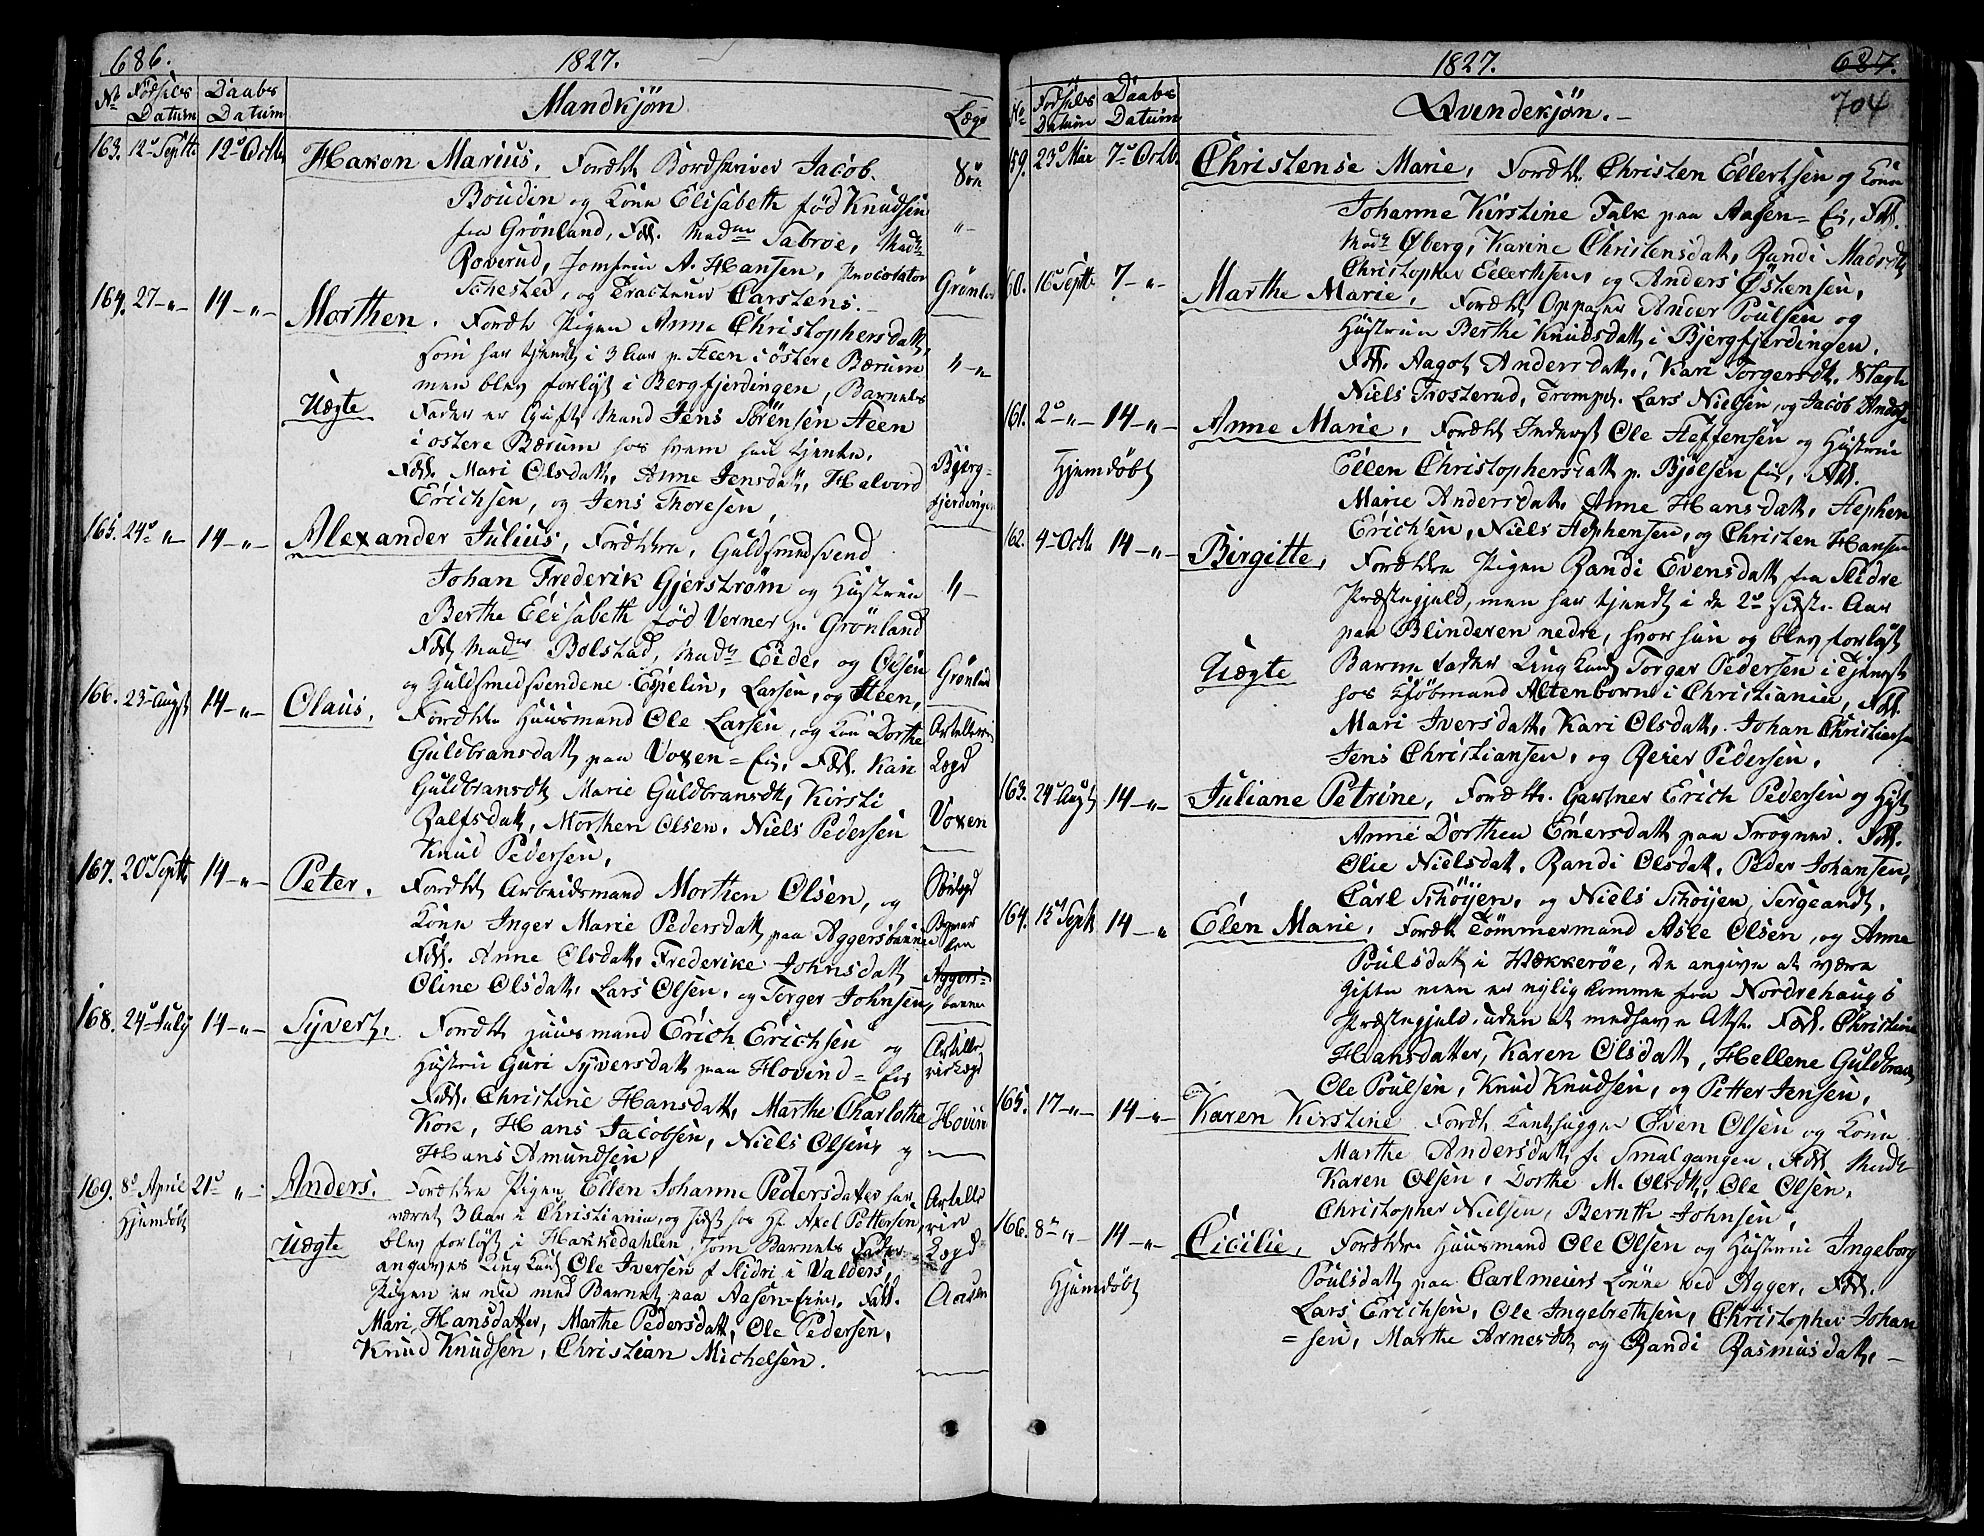 686.
1827.
No Fødsels Datum
Daabs Datum
Mandkjøn
Lægd
163. 12te Septbr 12te Octbr Hakon Marius. Forældre Bordskriver Jacob
Boudin og Kone Elisabeth fød Knudsen
fra Grönland, Fadd. Madme Tabroe, Mad
Roverud, Jomfrue A. Hansen, Procurator
Schested, og Tracteur Carstens.
Söe
Grönland
164. 27 -"- 14 -"- Morthen. Foræld. Pigen Anne Christophersdatt,
som har tjent i 3 Aar p. Steen i östere Bærum
men blev forløst i Bergfjerdingen, Barnets
Uægte Fader er Gift Mand Jens Sörensen Steen
i ostere Bærum hos hvem hun tjente.
Fadd. Mari Olsdatt, Anne Jensdatt, Halvord
Erichsen, og Jens Thoresen,
Bjerg-
fjerdingen
165. 24de " 14 -"- Alexander Julius, Forældre, Guldsmedsvend
Johan Frederik Gjerström og Hustrue
Berthe Elisabeth fød Verner p. Grönland
Fadd. Madm Bolstad, Mad Eide, og Olsen
og Guldsmedsvendene Espelin, Larsen, og Steen,
Grönland
166. 23 Augst 14 -"- Olaus. Forældre Huusmand Ole Larsen, og Kone Dorthe
Guldbransdatt paa Voxen-Eie, Fadd. Kari
Guldbransdtt, Marie Guldbransdtt, Kirsti
Ralfsdatt, Morthen Olsen, Niels Pedersen
Knud Pedersen,
Lægd
Voxen
167. 20de Septbr 14 -"- Peter. Forældre Arbeidsmand Morthen Olsen, og
Kone Inger Marie Pedersdatt paa Aggersbanne
Fadd. Anne Olsdatt, Frederike Johnsdatt
Oline Olsdatt, Lars Olsen, og Torger Johnsen,
Aggers-
banne
168. 24de July 14 -"- Syvert. Forældre Huusmand Erich Erichsen og
Hustrue Guri Syversdatt paa Hovind-Eie
Fadd. Christine Hansdatt, Marthe Charlothe
Kok, Hans Jacobsen, Niels Olsen, og
Hans Amundsen,
Hovin
169. 8de April 21de " Anders. Forældre Pigen Ellen Johanne Pedersdatter har
Hjemdöbt været 3 Aar i Christiania, og sidst hos Hr Axel Pettersen,
Uægte blev forløst i Hakkedahlen, som Barnets Fader
angaves Ung Karl Ole Iversen f. Slidri i Valders,
Pigen er nu med Barnet paa Aasen-Eie. Fadd.
Mari Hansdatter, Marthe Pedersdatt, Ole Pedersen,
Knud Knudsen, Christian Michelsen.
Lægd
Aasen
1827.
687.
704
No Fødsels Datum
Daabs Datum
Qvindekjøn.
159. 23de Mai 7de Octbr Christense Marie, Forældre Christen Ellertsen og Kone
Johanne Kirstine Falk paa Aasen-Eie, Fadd.
Mad Øberg, Karine Christensdatt, Randi Madsdtt,
Christopher Ellertsen, og Anders Östensen,
160. 16 Septbr 7 -"- Marthe Marie, Forældre Oppaser Ander Poulsen og
Hustrue Berthe Knudsdatt i Bjergfjerdingen.
Fadd. Aagot Andersdatt, Kari Torgersdt, Slagte
Niels Trosterud, Tromp. Lars Nielsen, og Jacob
161. 2de " 14 -"- Anne Marie. Forældre Inderst Ole Steffensen og Hustrue
Hjemdöbt Ellen Christophersdatt p. Bjølsen Eie, Fadd.
Marie Andersdatt, Anne Hansdatt, Stephen
Erichsen, Niels Stephensen, og Christen Hansen
162. 4de Octbr 14 -"- Birgitte, Forældre Pigen Randi Evensdatt fra Slidre
Præstegjeld, men har tjent i de 2de sidste Aar
paa Blinderen nedre, hvor hun og blev forløst
Uægte Barnefader Ung Karl Torger Pedersen i Tjeneste
hos Kjöbmand Altenborn i Christiania, Fadd.
Mari Iversdatt, Kari Olsdatt, Johan Christiansen
Jens Christiansen, og Reier Pedersen,
163. 24de Augst 14 -"- Juliane Petrine, Forældre Gartner Erich Pedersen og Hust
Anne Dorthea Enersdatt paa Frogner. Fadd.
Olie Nielsdatt, Randi Olsdatt, Peder Johansen,
Carl Schöyen, og Niels Schöyen, Sergeandt,
164. 15de Septbr 14 -" Elen Marie, Forældre Tömmermand Asle Olsen, og Anne
Poulsdatt i Hækkeröe, De angive at være
gifte men er nylig komme fra Nordrehaugs
Præstegjeld, uden at medhave Attst. Fadd. Christine
Hansdatter, Karen Olsdatt, Hellene Guldbransd
Ole Poulsen, Knud Knudsen, og Petter Jensen,
165. 17 -"- 14 -"- Karen Kirstine Foræld. Kanthugger Even Olsen og Kone
Marthe Andersdatt f. Smalgangen, Fadd. Mad
Karen Olsen, Dorthe M. Olsdtt, Ole Olsen,
Christopher Nielsen, Bernthe Johnsen,
166. 8de " 14 -"- Cicilie, Forældre Huusmand Ole Olsen og Hustrue Ingeborg
Hjemdöbt Poulsdatt paa Carlmeiers Lökke ved Agger, Fadd.
Lars Erichsen, Ole Ingebrethsen, Christopher Johan
=sen, Marthe Arnesdtt og Randi Rasmusdatt, -